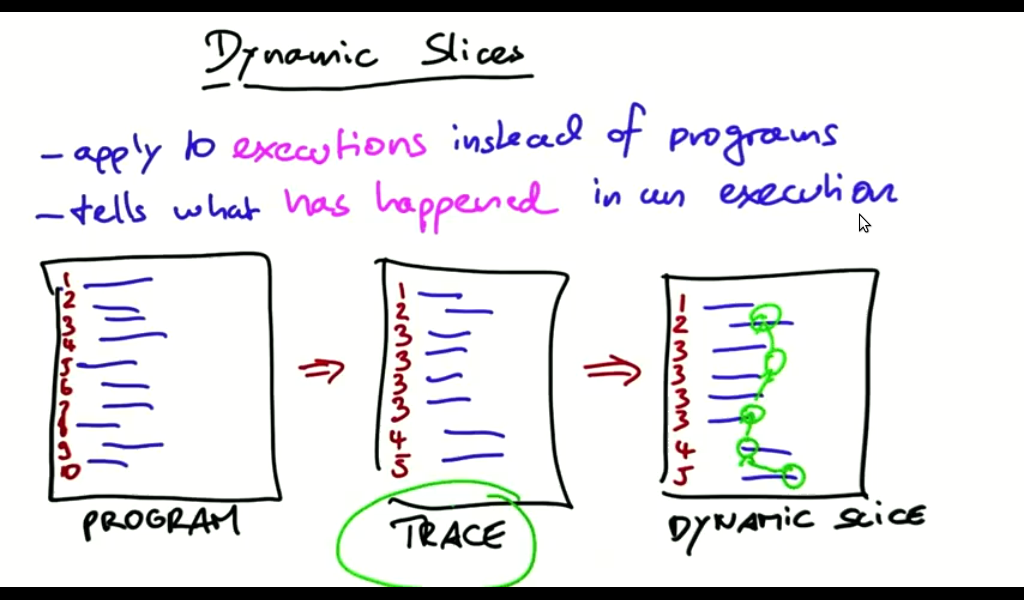 Dynamic Slices
- apply to executions instead of programs
- tells what has happened in an execution
1
2
3
4
5
6
7
8
9
10
PROGRAM
1
2
3
3
3
3
4
5
TRACE
1
2
3
3
3
3
4
5
DYNAMIC SLICE